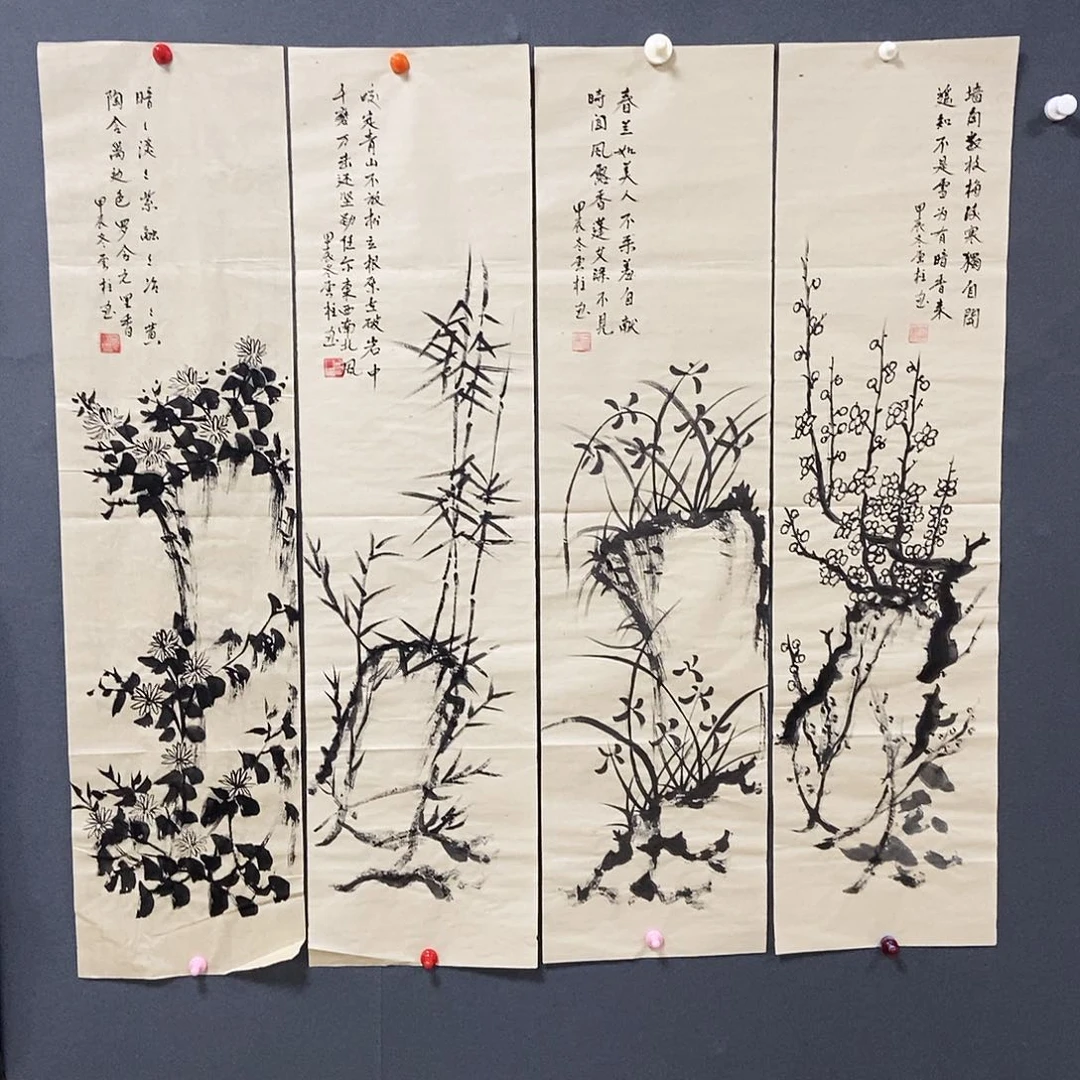 墙角数枝梅凌寒獨自開
遥知不是雪为有暗香来
甲辰冬雲柱画
春兰如美人不采羞自献
時闻风露香蓬艾深不見
甲辰冬雲柱画
咬定青山不放松立根原在破岩中
千磨万击还坚劲任尔東西南北风
甲辰冬雲柱画
暗々淡々紫融々冶々黄
陶令篱边色罗含宅里香
甲辰冬雲柱画